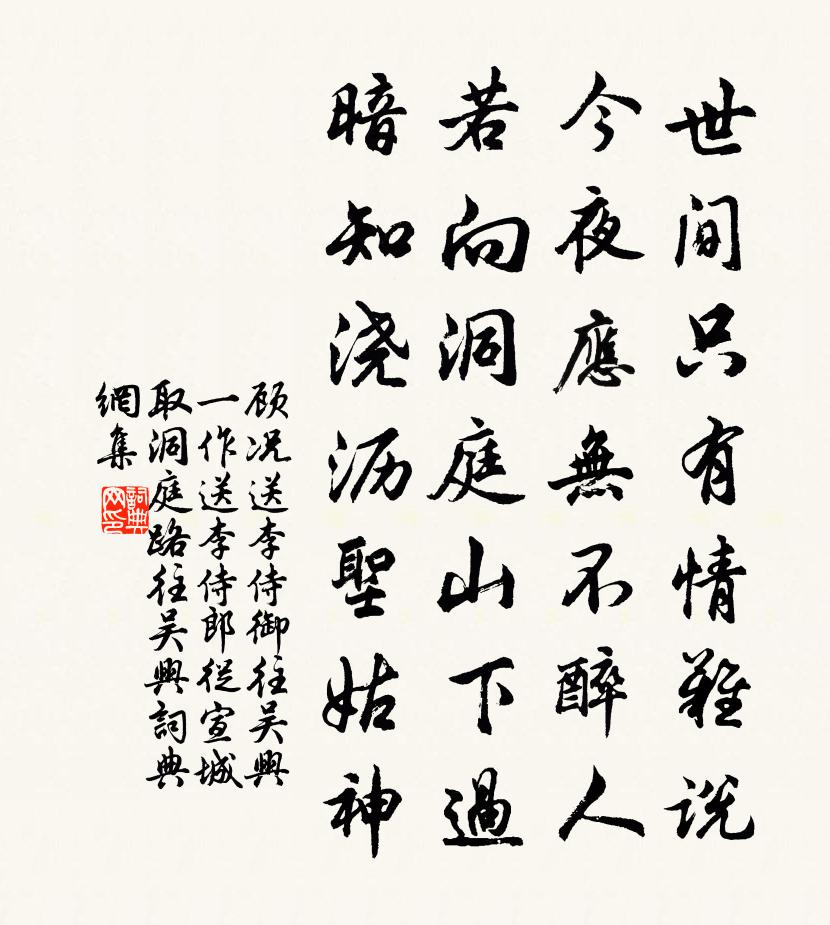 世间只有情難説
今夜應無不醉人
若向洞庭山下過
暗知浇沥聖姑神
顾况送李侍御往吴興
一作送李侍郎從宣城
取洞庭路往吴興詞典
網集
詞典
网印